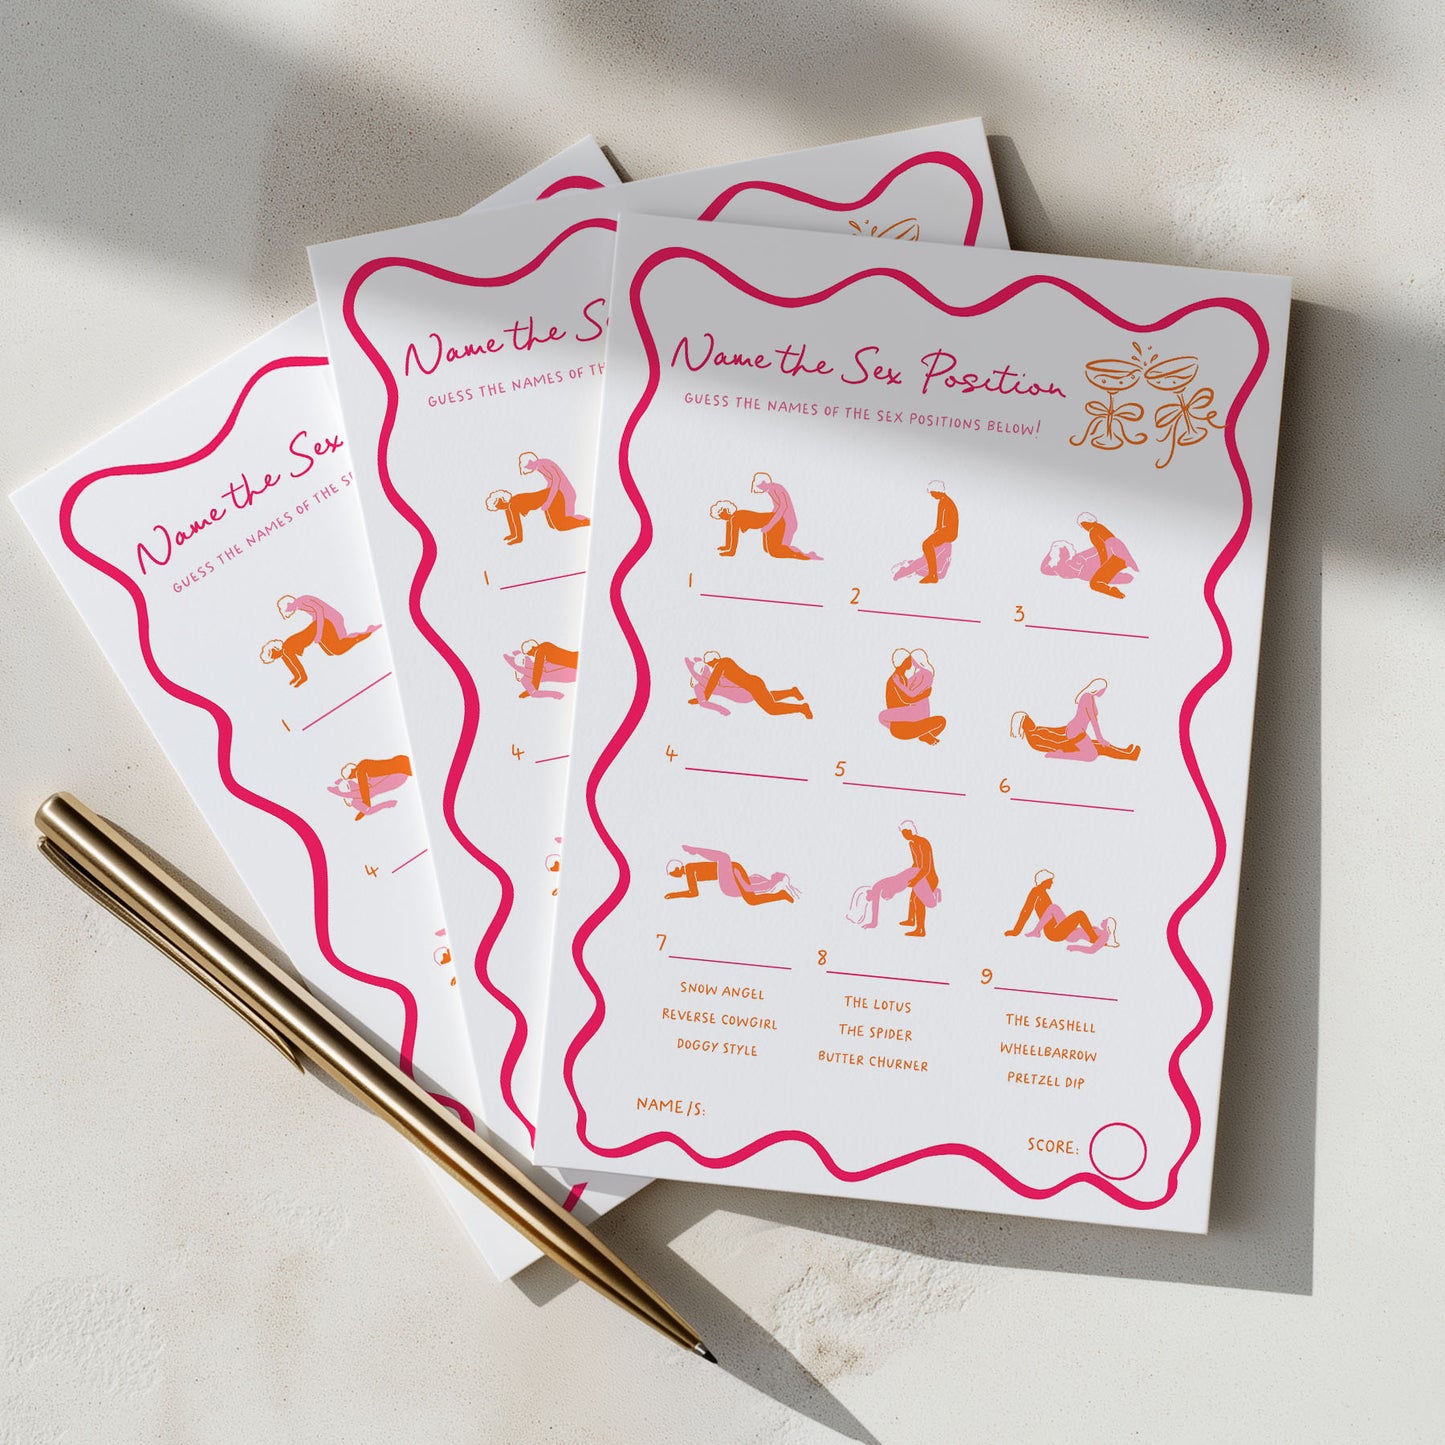 Name the Sex
GUESS THE NAMES OF THE
1
4
Name the S
GUESS THE NAMES OF TH
1
4
Name the Sex Position
GUESS THE NAMES OF THE SEX POSITIONS BELOW!
1
2
3
4
5
6
7
8
9
SNOW ANGEL
REVERSE COWGIRL
DOGGY STYLE
THE LOTUS
THE SPIDER
BUTTER CHURNER
THE SEASHELL
WHEELBARROW
PRETZEL DIP
NAME/S:
SCORE: